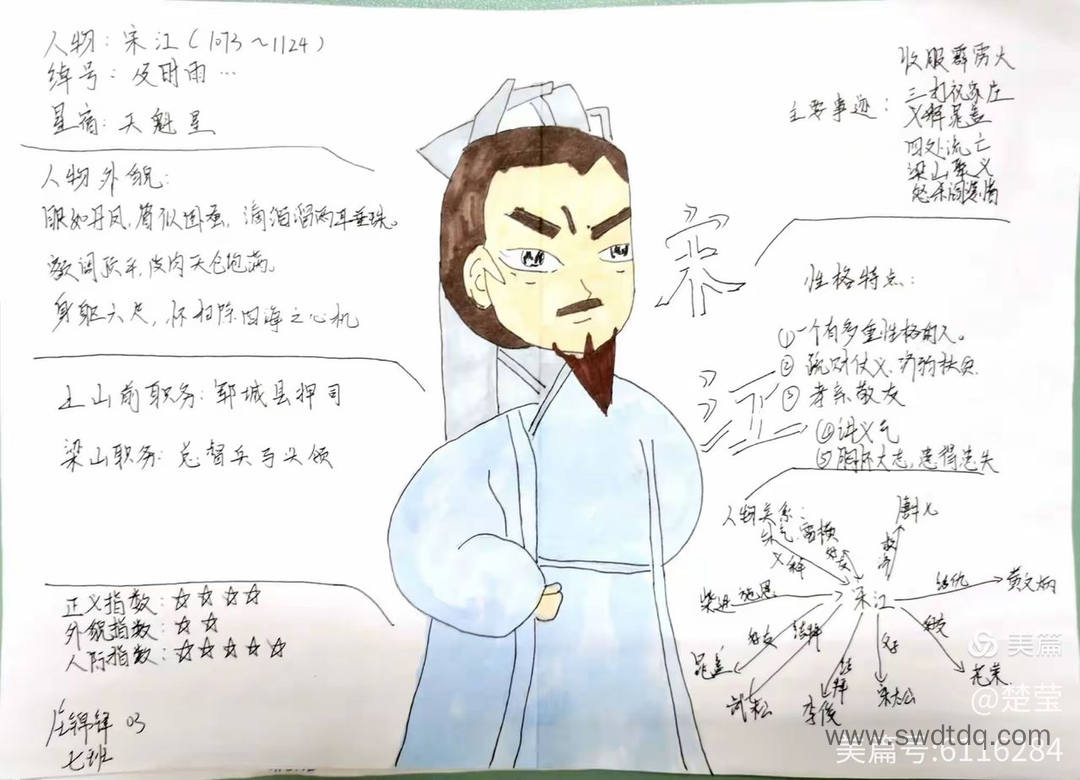 人物：宋江（1073～1124）
绰号：及时雨…
星宿：天魁星
人物外貌：
眼如丹凤，眉似卧蚕，滴溜溜两耳垂珠。
皮肉天仓饱满。
身躯六尺，怀扫除四海之心机
上山前职务：郓城县押司
梁山职务：总督兵马头领
正义指数：☆☆☆☆
外貌指数：☆☆
人际指数：☆☆☆☆☆
03
七班
宋
江
主要事迹：
收服霹雳火
三打祝家庄
义释晁盖
四处流亡
梁山聚义
怒杀阎婆惜
性格特点：
①一个有多重性格的人。
②疏财仗义，济弱扶贫
③孝亲敬友
④讲义气
⑤胸怀大志，患得患失
人物关系：
朱仝 雷横
义释
好友
唐牛儿
救济
柴进 施恩
宋江
结仇
黄文炳
好友
晁盖
结拜
武松
结拜
李俊
父子
宋太公
好友
花荣
美篇
@楚莹
www.swdtdq.com
美篇号:6116284